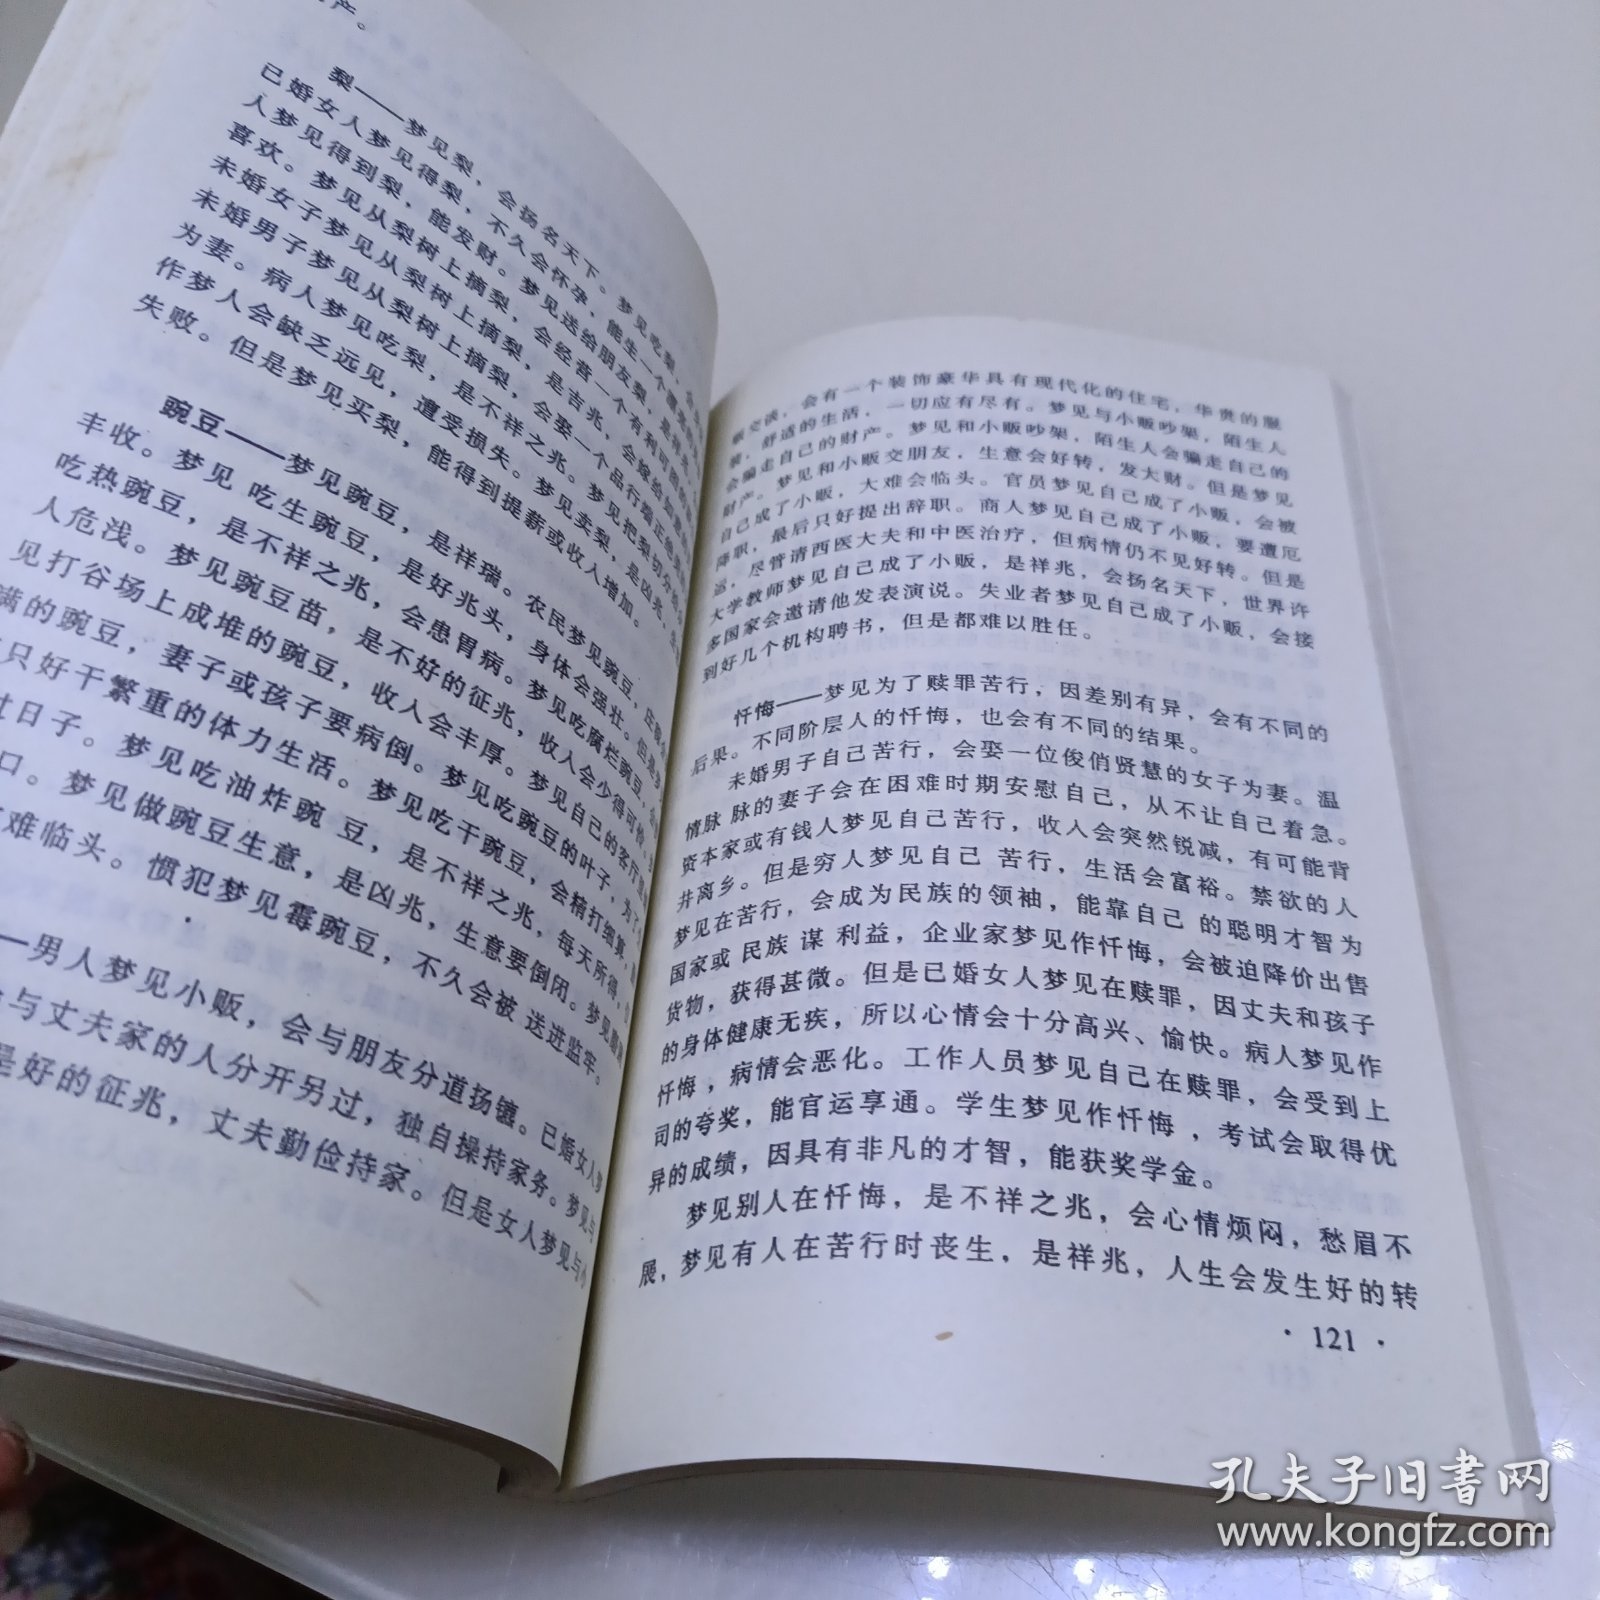 产。
梨——梦见梨，会扬名天下。梦见吃梨，会生
已婚女人梦见得梨，不久会怀孕，能生一个漂亮的
人梦见得到梨，能发财。梦见送给朋友梨，是祥兆，
喜欢。梦见从梨树上摘梨，会经营一个有利可图的
未婚女子梦见从梨树上摘梨，是吉兆，会嫁给如意
未婚男子梦见从梨树上摘梨，会娶一个品行端正
为妻。病人梦见吃梨，是不祥之兆。梦见把梨切分给
作梦人会缺乏远见，遭受损失。梦见卖梨，是凶兆，生
失败。但是梦见买梨，能得到提薪或收入增加。
豌豆——梦见豌豆，是祥瑞。农民梦见豌豆，庄
丰收。梦见 吃生豌豆，是好兆头，身体会强壮。但是
吃热豌豆，是不祥之兆，会患胃病。梦见吃腐烂豌豆，
人危浅。梦见豌豆苗，是不好的征兆，收入会少得可怜。
见打谷场上成堆的豌豆，收入会丰厚。梦见自己的客厅
满的豌豆，妻子或孩子要病倒。梦见吃豌豆的叶子，为了
只好干繁重的体力生活。梦见吃干豌豆，会精打细算，
过日子。梦见吃油炸豌 豆，是不祥之兆，每天所得，
口。梦见做豌豆生意，是凶兆，生意要倒闭。梦见
难临头。惯犯梦见霉豌豆，不久会被 送进监牢。
—男人梦见小贩，会与朋友分道扬镳。已婚女人梦
与丈夫家的人分开另过，独自操持家务。梦见与
是好的征兆，丈夫勤俭持家。但是女人梦见与小
贩交谈，会有一个装饰豪华具有现代化的住宅，华贵的服
装，舒适的生活，一切应有尽有。梦见与小贩吵架，陌生人
会骗走自己的财产。梦见和小贩吵架，陌生人会骗走自己的
财产。梦见和小贩交朋友，生意会好转，发大财。但是梦见
自己成了小贩，大难会临头。官员梦见自己成了小贩，会被
降职，最后只好提出辞职。商人梦见自己成了小贩，要遭厄
运，尽管请西医大夫和中医治疗，但病情仍不见好转。但是
大学教师梦见自己成了小贩，是祥兆，会扬名天下，世界许
多国家会邀请他发表演说。失业者梦见自己成了小贩，会接
到好几个机构聘书，但是都难以胜任。
忏悔——梦见为了赎罪苦行，因差别有异，会有不同的
后果。不同阶层人的忏悔，也会有不同的结果。
未婚男子自己苦行，会娶一位俊俏贤慧的女子为妻。温
情脉 脉的妻子会在困难时期安慰自己，从不让自己着急。
资本家或有钱人梦见自己苦行，收入会突然锐减，有可能背
井离乡。但是穷人梦见自己 苦行，生活会富裕。禁欲的人
梦见在苦行，会成为民族的领袖，能靠自己 的聪明才智为
国家或 民族 谋 利益，企业家梦见作忏悔，会被迫降价出售
货物，获得甚微。但是已婚女人梦见在赎罪，因丈夫和孩子
的身体健康无疾，所以心情会十分高兴、愉快。病人梦见作
忏悔，病情会恶化。工作人员梦见自己在赎罪，会受到上
司的夸奖，能官运享通。学生梦见作忏悔，考试会取得优
异的成绩，因具有非凡的才智，能获奖学金。
梦见别人在忏悔，是不祥之兆，会心情烦闷，愁眉不
展，梦见有人在苦行时丧生，是祥兆，人生会发生好的转
· 121 ·
孔夫子旧书网
www.kongfz.com